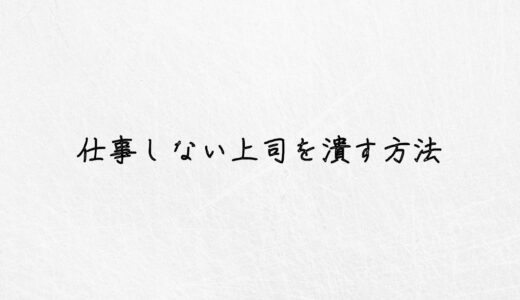 仕事しない上司を潰す方法